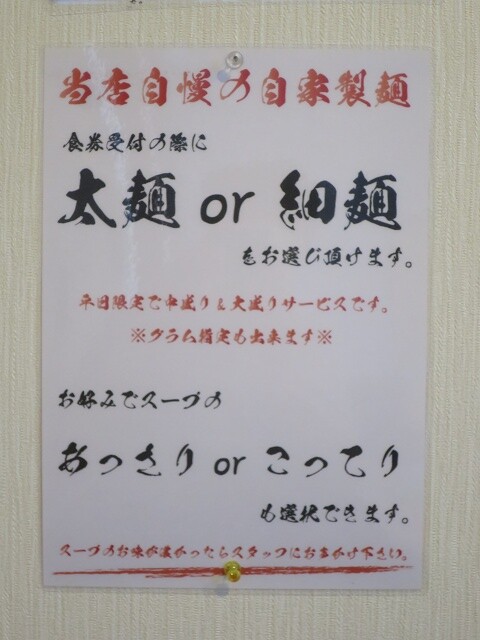 当店自慢の自家製麺
食券受付の際に
太麺 or 細麺
をお選び頂けます。
平日限定で中盛り&大盛りサービスです。
※グラム指定も出来ます※
お好みでスープの
あっさり or こってり
も選択できます。
スープのお味が濃かったらスタッフにお声がけ下さい。